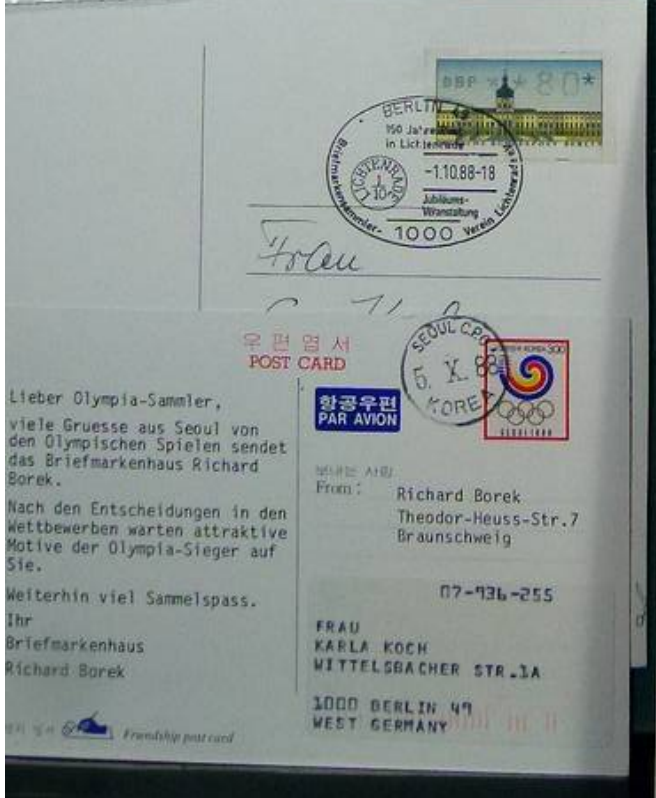 DBP * * 80 *
BERLIN 49
150 Jahre
in Lichtenrade
LICHTENRADE
1/10
-1.10.88-18
Jubiläums-
Veranstaltung
Briefmarkensammler-
Verein Lichtenrade
1000
Frau
우편엽서
POST CARD
SEOUL C.P.O.
5. X. 88
KOREA
300
SEOUL 1988
항공우편
PAR AVION
Lieber Olympia-Sammler,
viele Gruesse aus Seoul von
den Olympischen Spielen sendet
das Briefmarkenhaus Richard
Borek.
Nach den Entscheidungen in den
Wettbewerben warten attraktive
Motive der Olympia-Sieger auf
Sie.
Weiterhin viel Sammelspass.
Ihr
Briefmarkenhaus
Richard Borek
보내는 사람
From :
Richard Borek
Theodor-Heuss-Str.7
Braunschweig
07-936-255
FRAU
KARLA KOCH
WITTELSBACHER STR.1A
1000 BERLIN 49
WEST GERMANY
Friendship post card